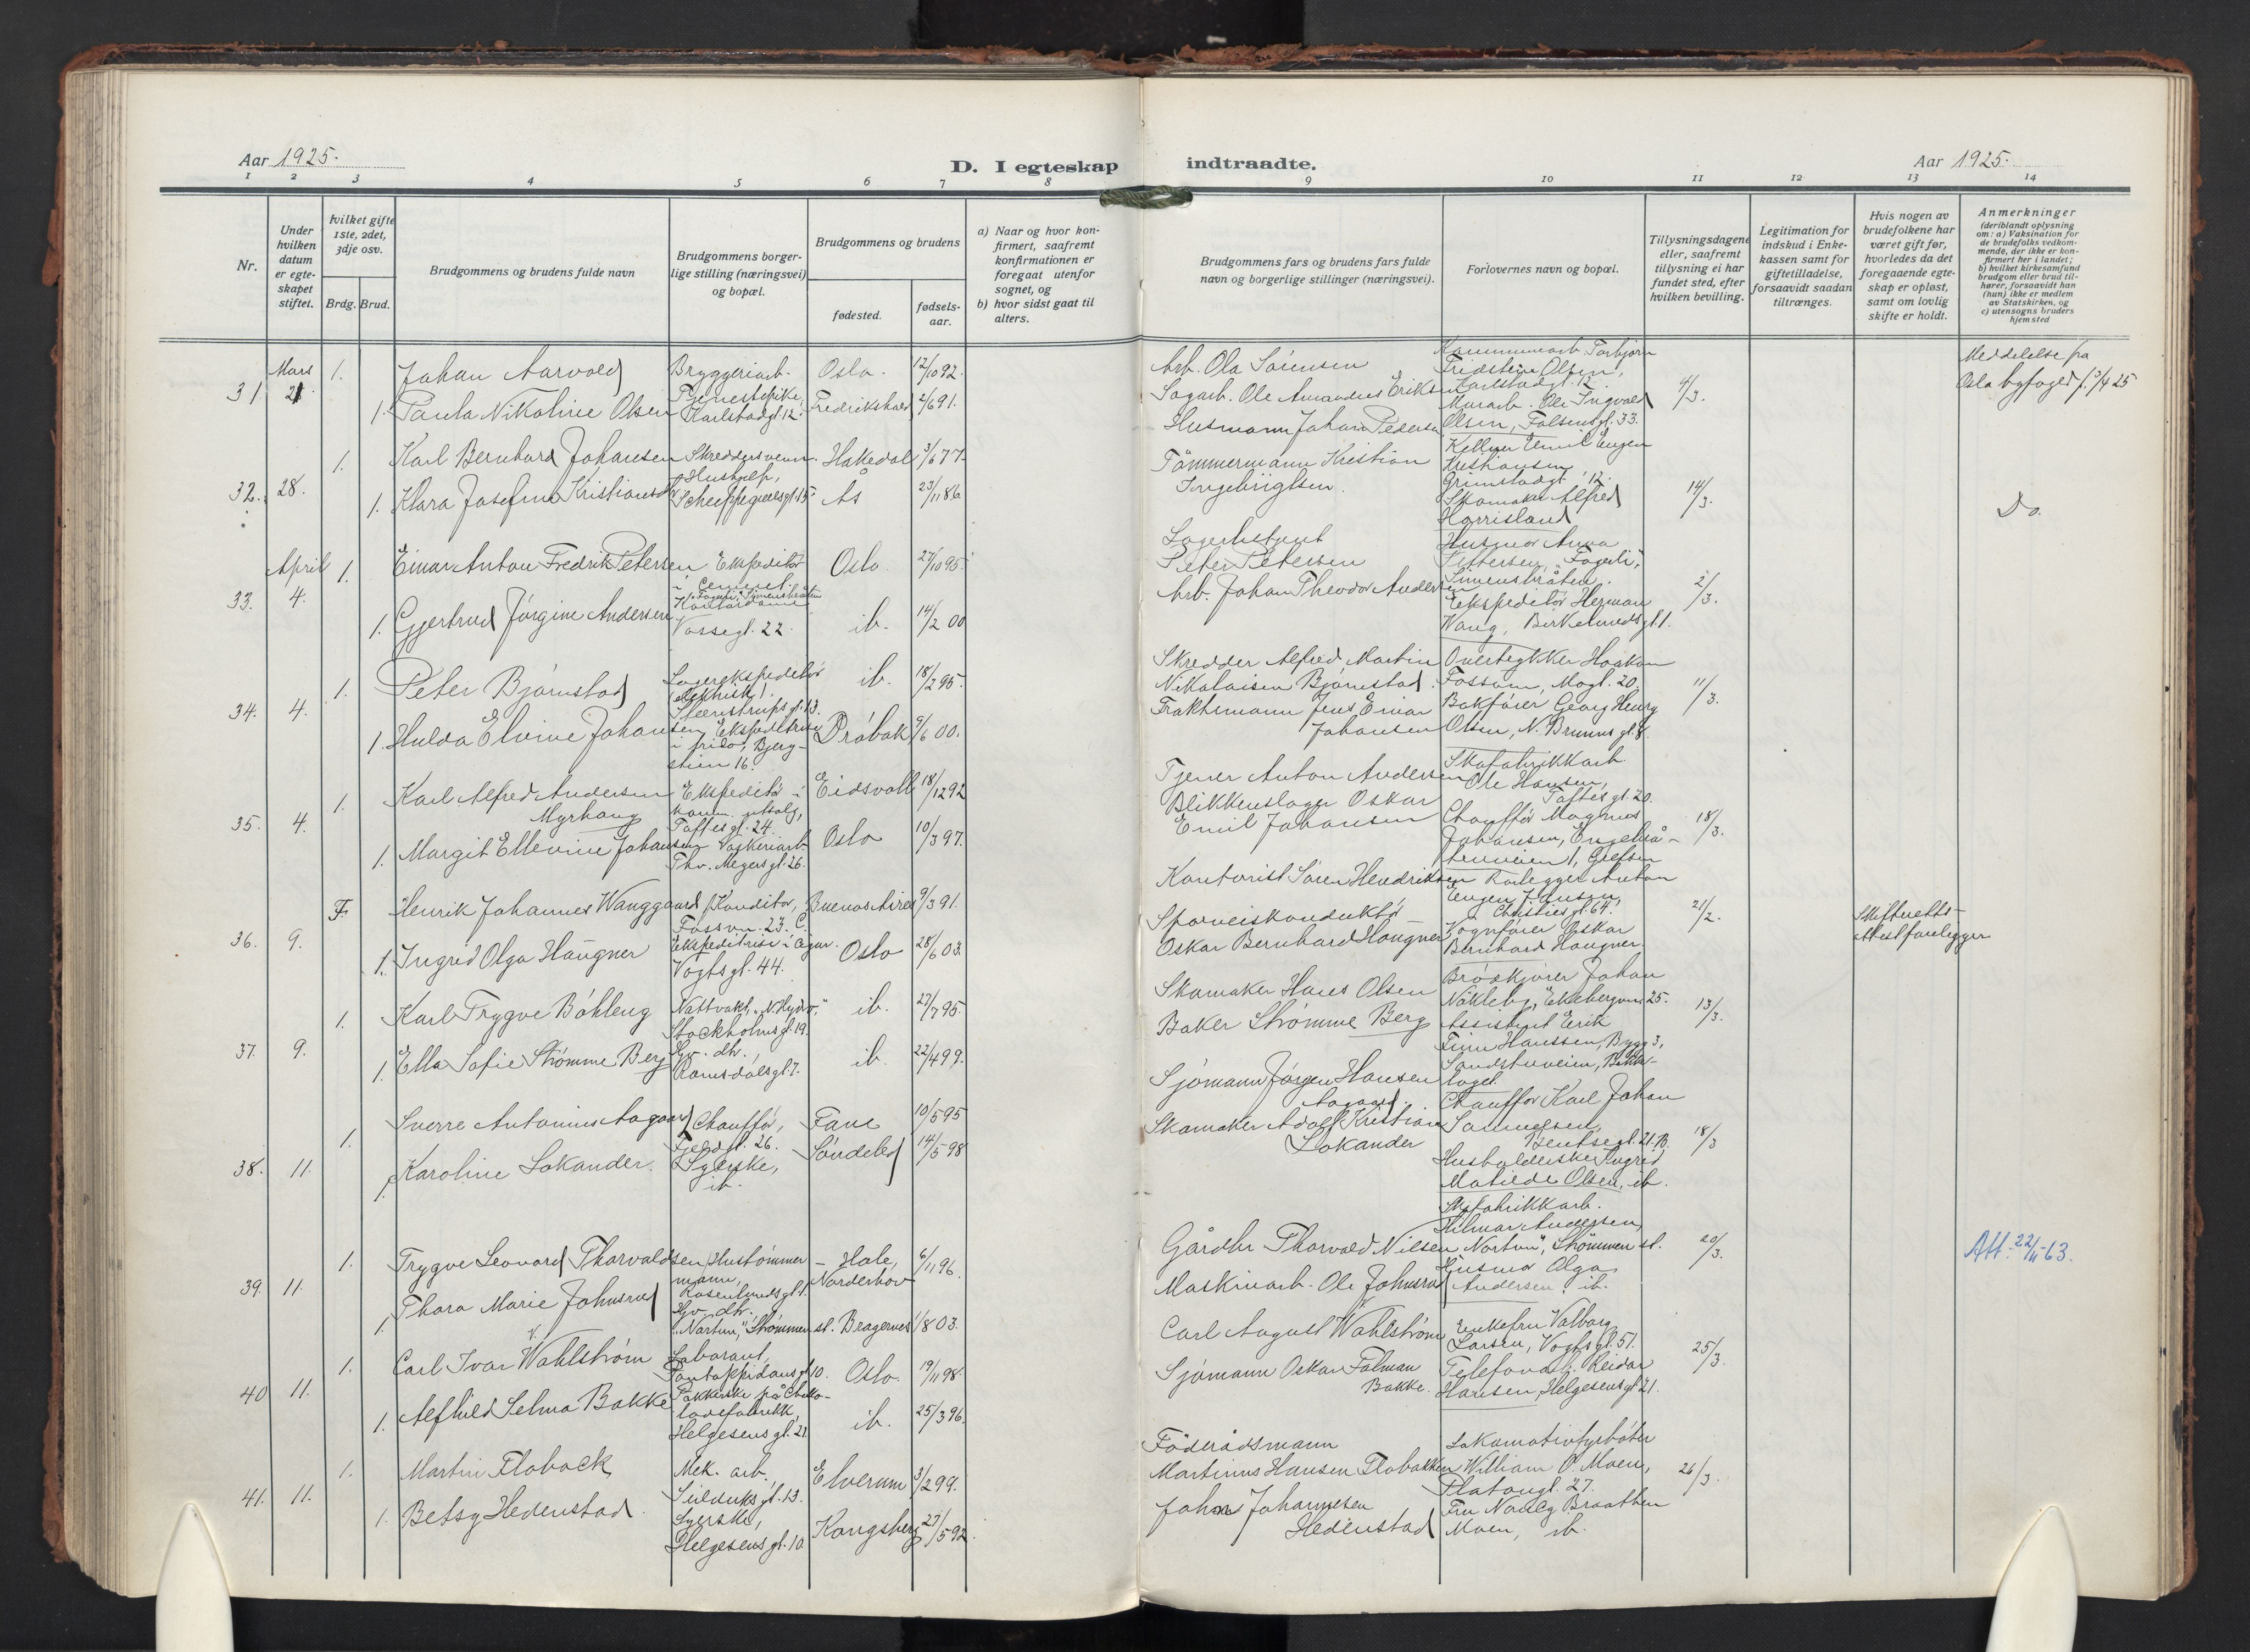 Aar 1925.
D. I egteskap indtraadte.
Aar 1925.
1 2 3 4 5 6 7 8 9 10 11 12 13 14
Nr.
Under hvilken datum er egteskapet stiftet.
hvilket gifte 1ste, 2det, 3dje osv.
Brdg. Brud.
Brudgommens og brudens fulde navn
Brudgommens borgerlige stilling (næringsvei) og bopæl.
Brudgommens og brudens
fødested.
fødselsaar.
a) Naar og hvor konfirmert, saafremt konfirmationen er foregaat utenfor sognet, og
b) hvor sidst gaat til alters.
Brudgommens fars og brudens fars fulde navn og borgerlige stillinger (næringsvei).
Forlovernes navn og bopæl.
Tillysningsdagene eller, saafremt tillysning ei har fundet sted, efter hvilken bevilling.
Legitimation for indskud i Enkekassen samt for giftetilladelse, forsaavidt saadan tiltrænges.
Hvis nogen av brudefolkene har været gift før, hvorledes da det foregaaende egteskap er opløst, samt om lovlig skifte er holdt.
Anmerkninger
(deriblandt oplysning om: a) Vaksination for de brudefolks vedkommende, der ikke er konfirmert her i landet; b) hvilket kirkesamfund brudgom eller brud tilhører, forsaavidt han (hun) ikke er medlem av Statskirken, og c) utensogns bruders hjemsted
31 Mars 21.
1. Johan Aarvold Bryggeriarb. Oslo. 12/10 92.
1. Paula Nikoline Olsen Tjenestepike, Karlstadgt. 12. Fredrikshald 2/6 91.
Arb. Ola Sørensen
Sagarb. Ole Amandus Eriksen
Kommunearb. Torbjørn Fridstein Olsen, Karlstadgt. 12.
Murarb. Ole Ingvald Olsen, Falsensgt. 33.
4/3.
Meddelelse fra Oslo byfoged f. 3/4 25
32. 28.
1. Karl Bernhard Johansen Skreddersvenn. Hakedal 3/6 77
1. Klara Josefine Kristiansen Hushjelp, Schweppegrellsgt. 15. Ås 23/11 86
Husmann Johan Pedersen
Tømmermann Kristian Ingebrigtsen.
Kelner Emil Eugen Kristiansen Grimstadgt. 12.
Skomaker Alfred Harrisland
14/3.
Do.
33. April 4.
1. Einar Anton Fredrik Petersen Ekspeditør i Cement. "Fagerli," Simensbråten Oslo. 27/10 95.
1. Gjertrud Jørgine Andersen Kontordame Vossegt. 22. ib. 14/2 00
Lagerbetjent Peter Petersen
Arb. Johan Theodor Andersen
Husmor Anna Pettersen, "Fagerli," Simensbråten.
Ekspeditør Herman Wang, Birkelundsgt. 1.
2/3.
34. 4.
1. Peter Bjørnstad Lagerekspeditør (elektrisk). Steenstrupsgt. 13. ib. 18/2 95.
1. Hulda Elvine Johansen, Ekspeditrise i frilo., Bjergstien 16. Drøbak 9/6 00.
Skredder Alfred Martin Nikolaisen Bjørnstad.
Fraktemann Jens Einar Johansen
Overtegtker Haakon Fossum, Mogt. 20.
Bokfører Georg Henry Olsen, N. Brunns gt. 8.
11/3.
35. 4.
1. Karl Alfred Andersen Myrhaug Ekspeditør i komm. utsalg, Toftesgt. 24. Eidsvoll 18/12 92
1. Margit Ellevine Johansen Vaskeriarb. Thv. Meyersgt. 26. Oslo 10/3 97.
Tjener Anton Andersen
Blikkenslager Oskar Emil Johansen
Skofabrikkarb. Ole Hansen, Toftesgt. 20.
Chauffør Magnus Johansen, Engelsåstenveien 1, Grefsen
18/3.
36. 9.
F. Henrik Johannes Wanggaard Konditor, Fossvn. 23. C. Buenos Aires 9/3 91.
1. Ingrid Olga Haugner Ekspeditrise i Cigar. Vogtsgt. 44. Oslo 28/6 03.
Kontorist Søren Hendriksen
Sporveiskonduktør Oskar Bernhard Haugner
Rørlegger Anton Eugen Jensen, Christiesgt. 64.
Vognfører Oskar Bernhard Haugner.
21/2.
Skifteretts-attest foreligger
37. 9.
1. Karl Trygve Bøhleng Nattvakt, "N. Hydro," Stockholmsgt. 19. ib. 27/7 95.
1. Ella Sofie Strømme Berg Sy. dh., Romsdalsgt. 7. ib. 22/4 99.
Skomaker Hans Olsen
Baker Strømme Berg
Brødkjører Johan Nökleby, Ekebergvn. 25.
Assistent Erik Finn Hanssen, Bygg 3, Sandstuveien, Bekkelaget.
13/3.
38. 11.
1. Sverre Antonius Aagaard Chauffør, Fjeldgt. 26. Fane 10/5 95
1. Karoline Lokander. Syerske, ib. Søndeled 14/5 98
Sjømann Jørgen Hansen Aagaard.
Skomaker Adolf Kristian Lokander
Chauffør Karl Johan Samuelsen, Bentsegt. 21. B.
Husholderske Ingrid Matilde Olsen, ib.
18/3
39. 11.
1. Trygve Leonard Thorvaldsen Hustømmermann, Rosenlundsgt. 1. Hole, 6/11 96.
1. Thora Marie Johnsrud Sy. dh. "Nortun," Strømmen st. Norderhov Bragernes 1/8 03.
Gårdbr Thorvald Nilsen
Maskinarb. Ole Johnsrud
Skofabrikkarb. Hilmar Andersen, "Nortun", Strømmen st.
Husmor Olga Andersen. ib.
20/3.
Att. 22/11-63.
40 11.
1. Carl Ivar Wahlstrøm Laborant, Pontoppidansgt. 10. Oslo. 19/11 98.
1. Alfhild Selma Bakke Pakkerske på Chokoladefabrikk, Helgesensgt. 21. ib. 25/3 96.
Carl August Wahlstrøm
Sjømann Oskar Falman Bakke.
Enkefru Valborg Larsen, Vogtsgt. 51.
Telefonarb. Reidar Hansen, Helgesensgt 21.
25/3.
41. 11.
1. Martin Flaback Mek. arb., Seilduksgt. 13. Elverum 3/2 99.
1. Betsy Hedenstad. Syerske, Helgesensgt. 10. Kongsberg 27/5 92.
Föderådsmann Martinus Hansen Flobakken
Johan Johannesen Hedenstad
Lokomotivfyrbøter William O. Moen, Platousgt. 27.
Fru Nanly Braathen Moen, ib.
26/3.